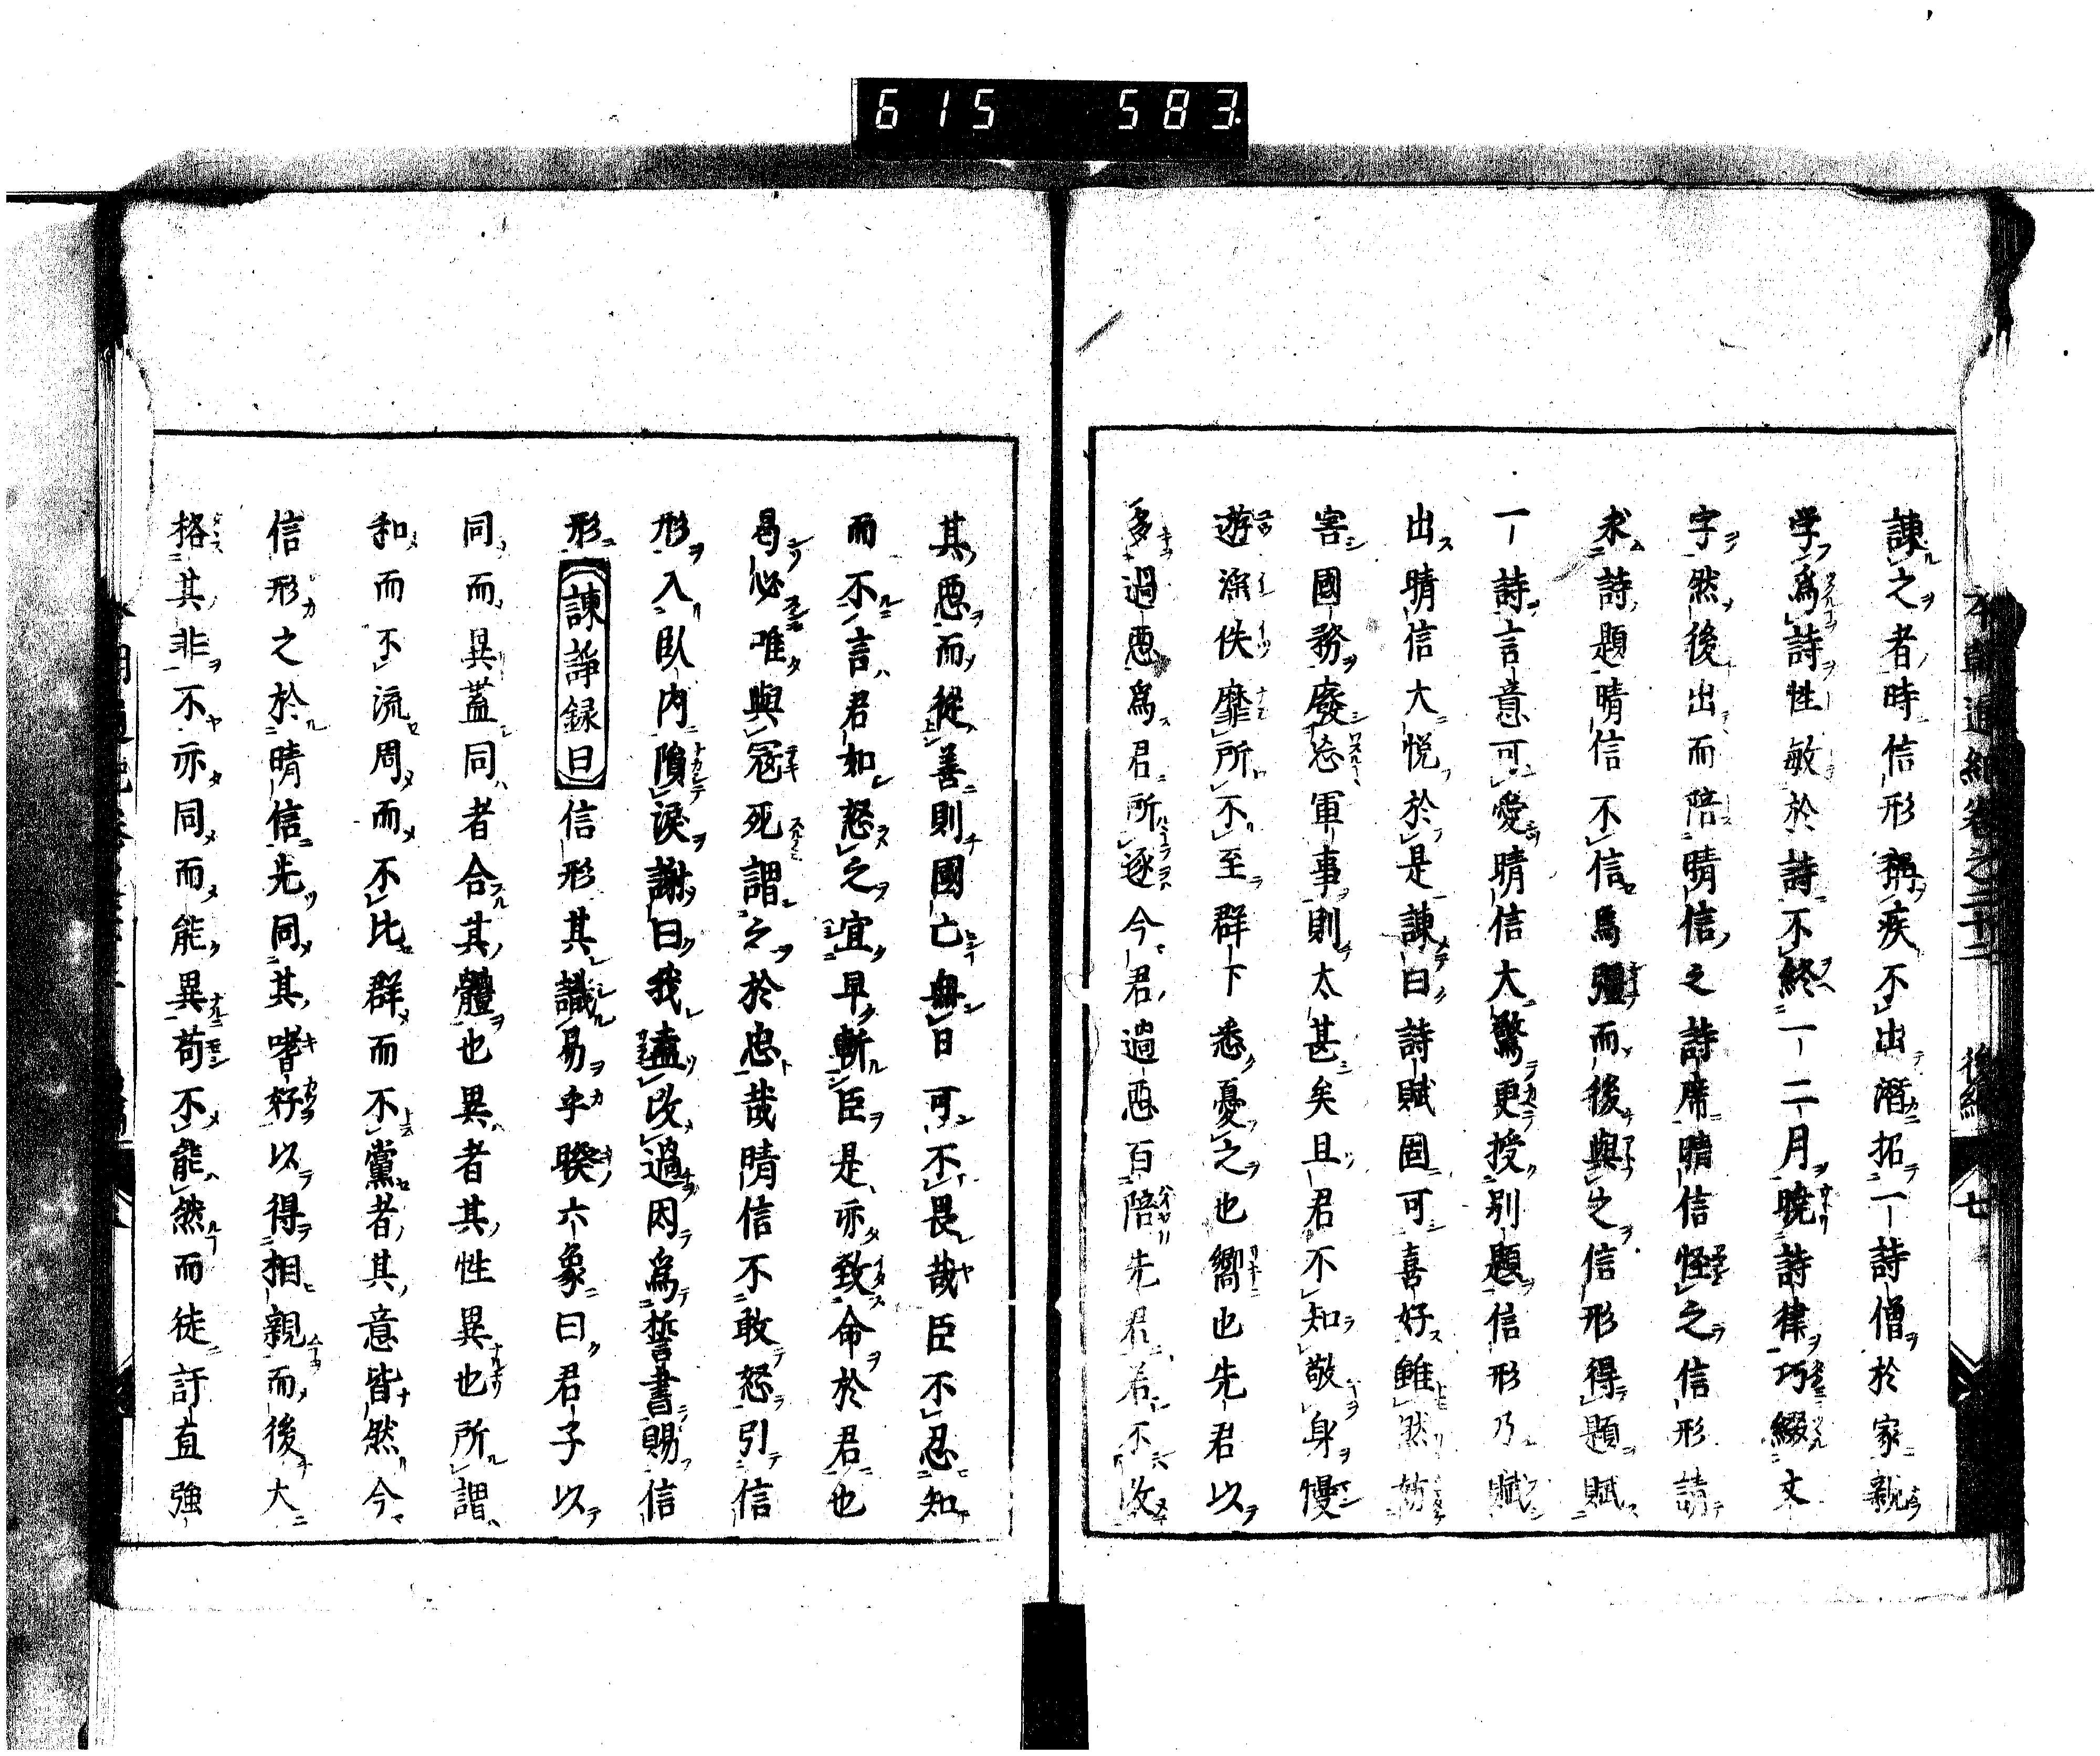 615 583
諫之者時信形稱疾不出潛招一詩僧於家親
学爲詩性敏於詩不終一二月曉詩律巧綴文
字然後出而陪晴信之詩席晴信怪之信形請
求詩題晴信不信爲彊而後與之信形得題賦
一詩言意可愛晴信大驚更授別題信形乃賦
出晴信大悦於是諫曰詩賦固可喜好雖然妨
害國務廢忘軍事則太甚矣且君不知敬身慢
遊漁佚靡所不至群下悉憂之也嚮也先君以
多過惡爲君所逐今君過惡百陪先君君不改
其惡而從善則國亡無日可不畏哉臣不忍知
而不言君如怒之宜早斬臣是亦致命於君也
曷必唯與冦死謂之於忠哉晴信不敢怒引信
形入臥内隕淚謝曰我盍改過因爲誓書賜信
形諫諍録曰信形其識易乎睽六象曰君子以
同而異蓋同者合其體也異者其性異也所謂
和而不流周而不比群而不黨者其意皆然今
信形之於晴信先同其嗜好以得相親而後大
格其非不亦同而能異苟不能然而徒訐直強